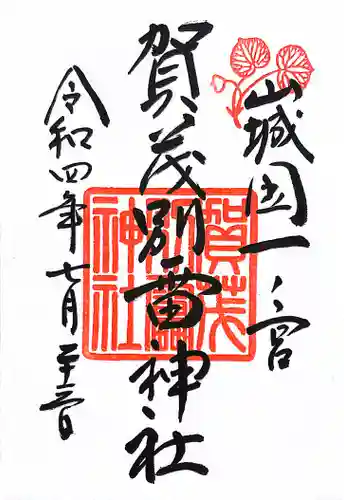 山城国一ノ宮
賀茂別雷神社
令和四年七月二十三日
賀茂
別雷
神社